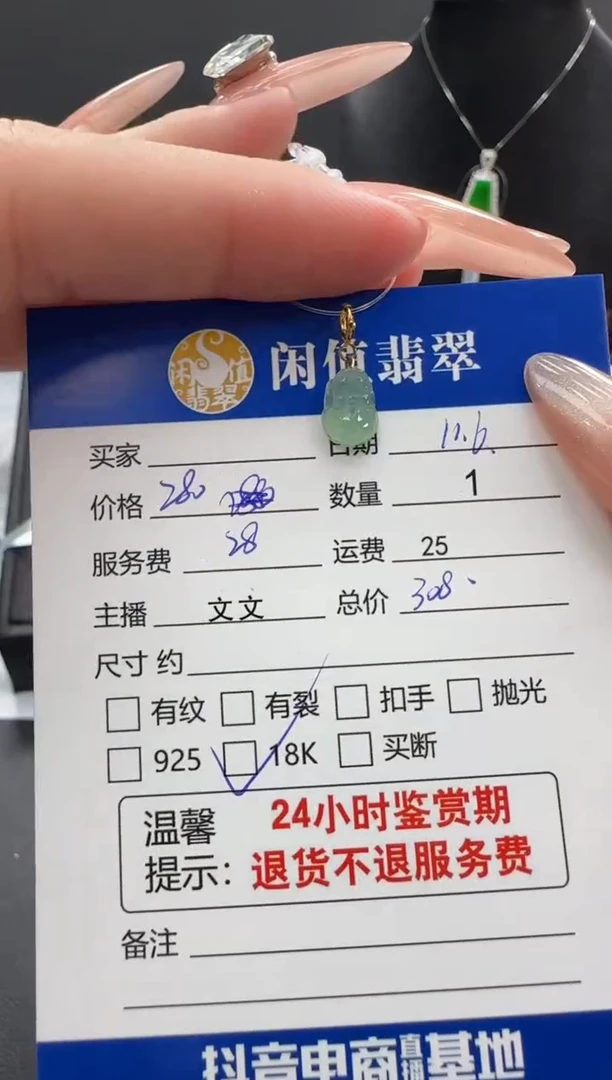 闲值翡翠
闲值
翡翠
买家 日期 11.6
价格 280 数量 1
服务费 28 运费 25
主播 文文 总价 308
尺寸 约
有纹 有裂 扣手 抛光
925 18K 买断
温馨 24小时鉴赏期
提示：退货不退服务费
备注
抖音电商直播基地